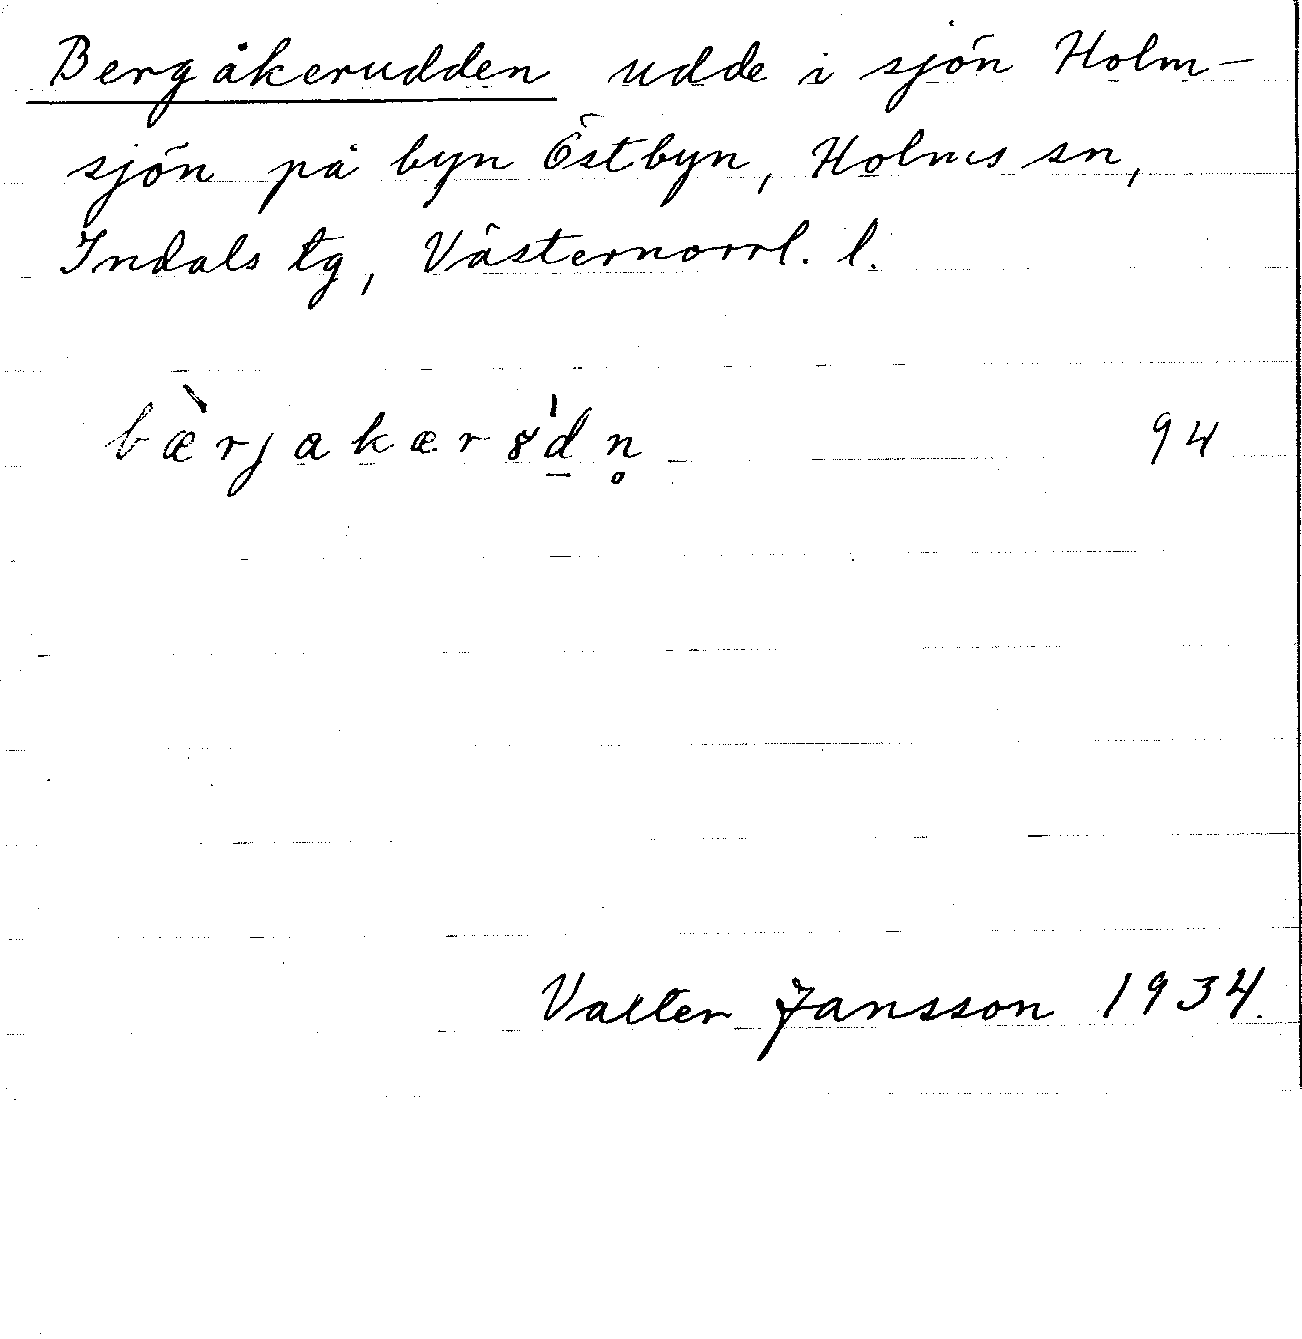 Bergåkerudden udde i sjön Holm-
sjön på byn Östbyn, Holms sn,
Indals tg, Västernorrl. l.
bæ̀rjakærȣ̍d̲n̥ 94
Valter Jansson 1934.